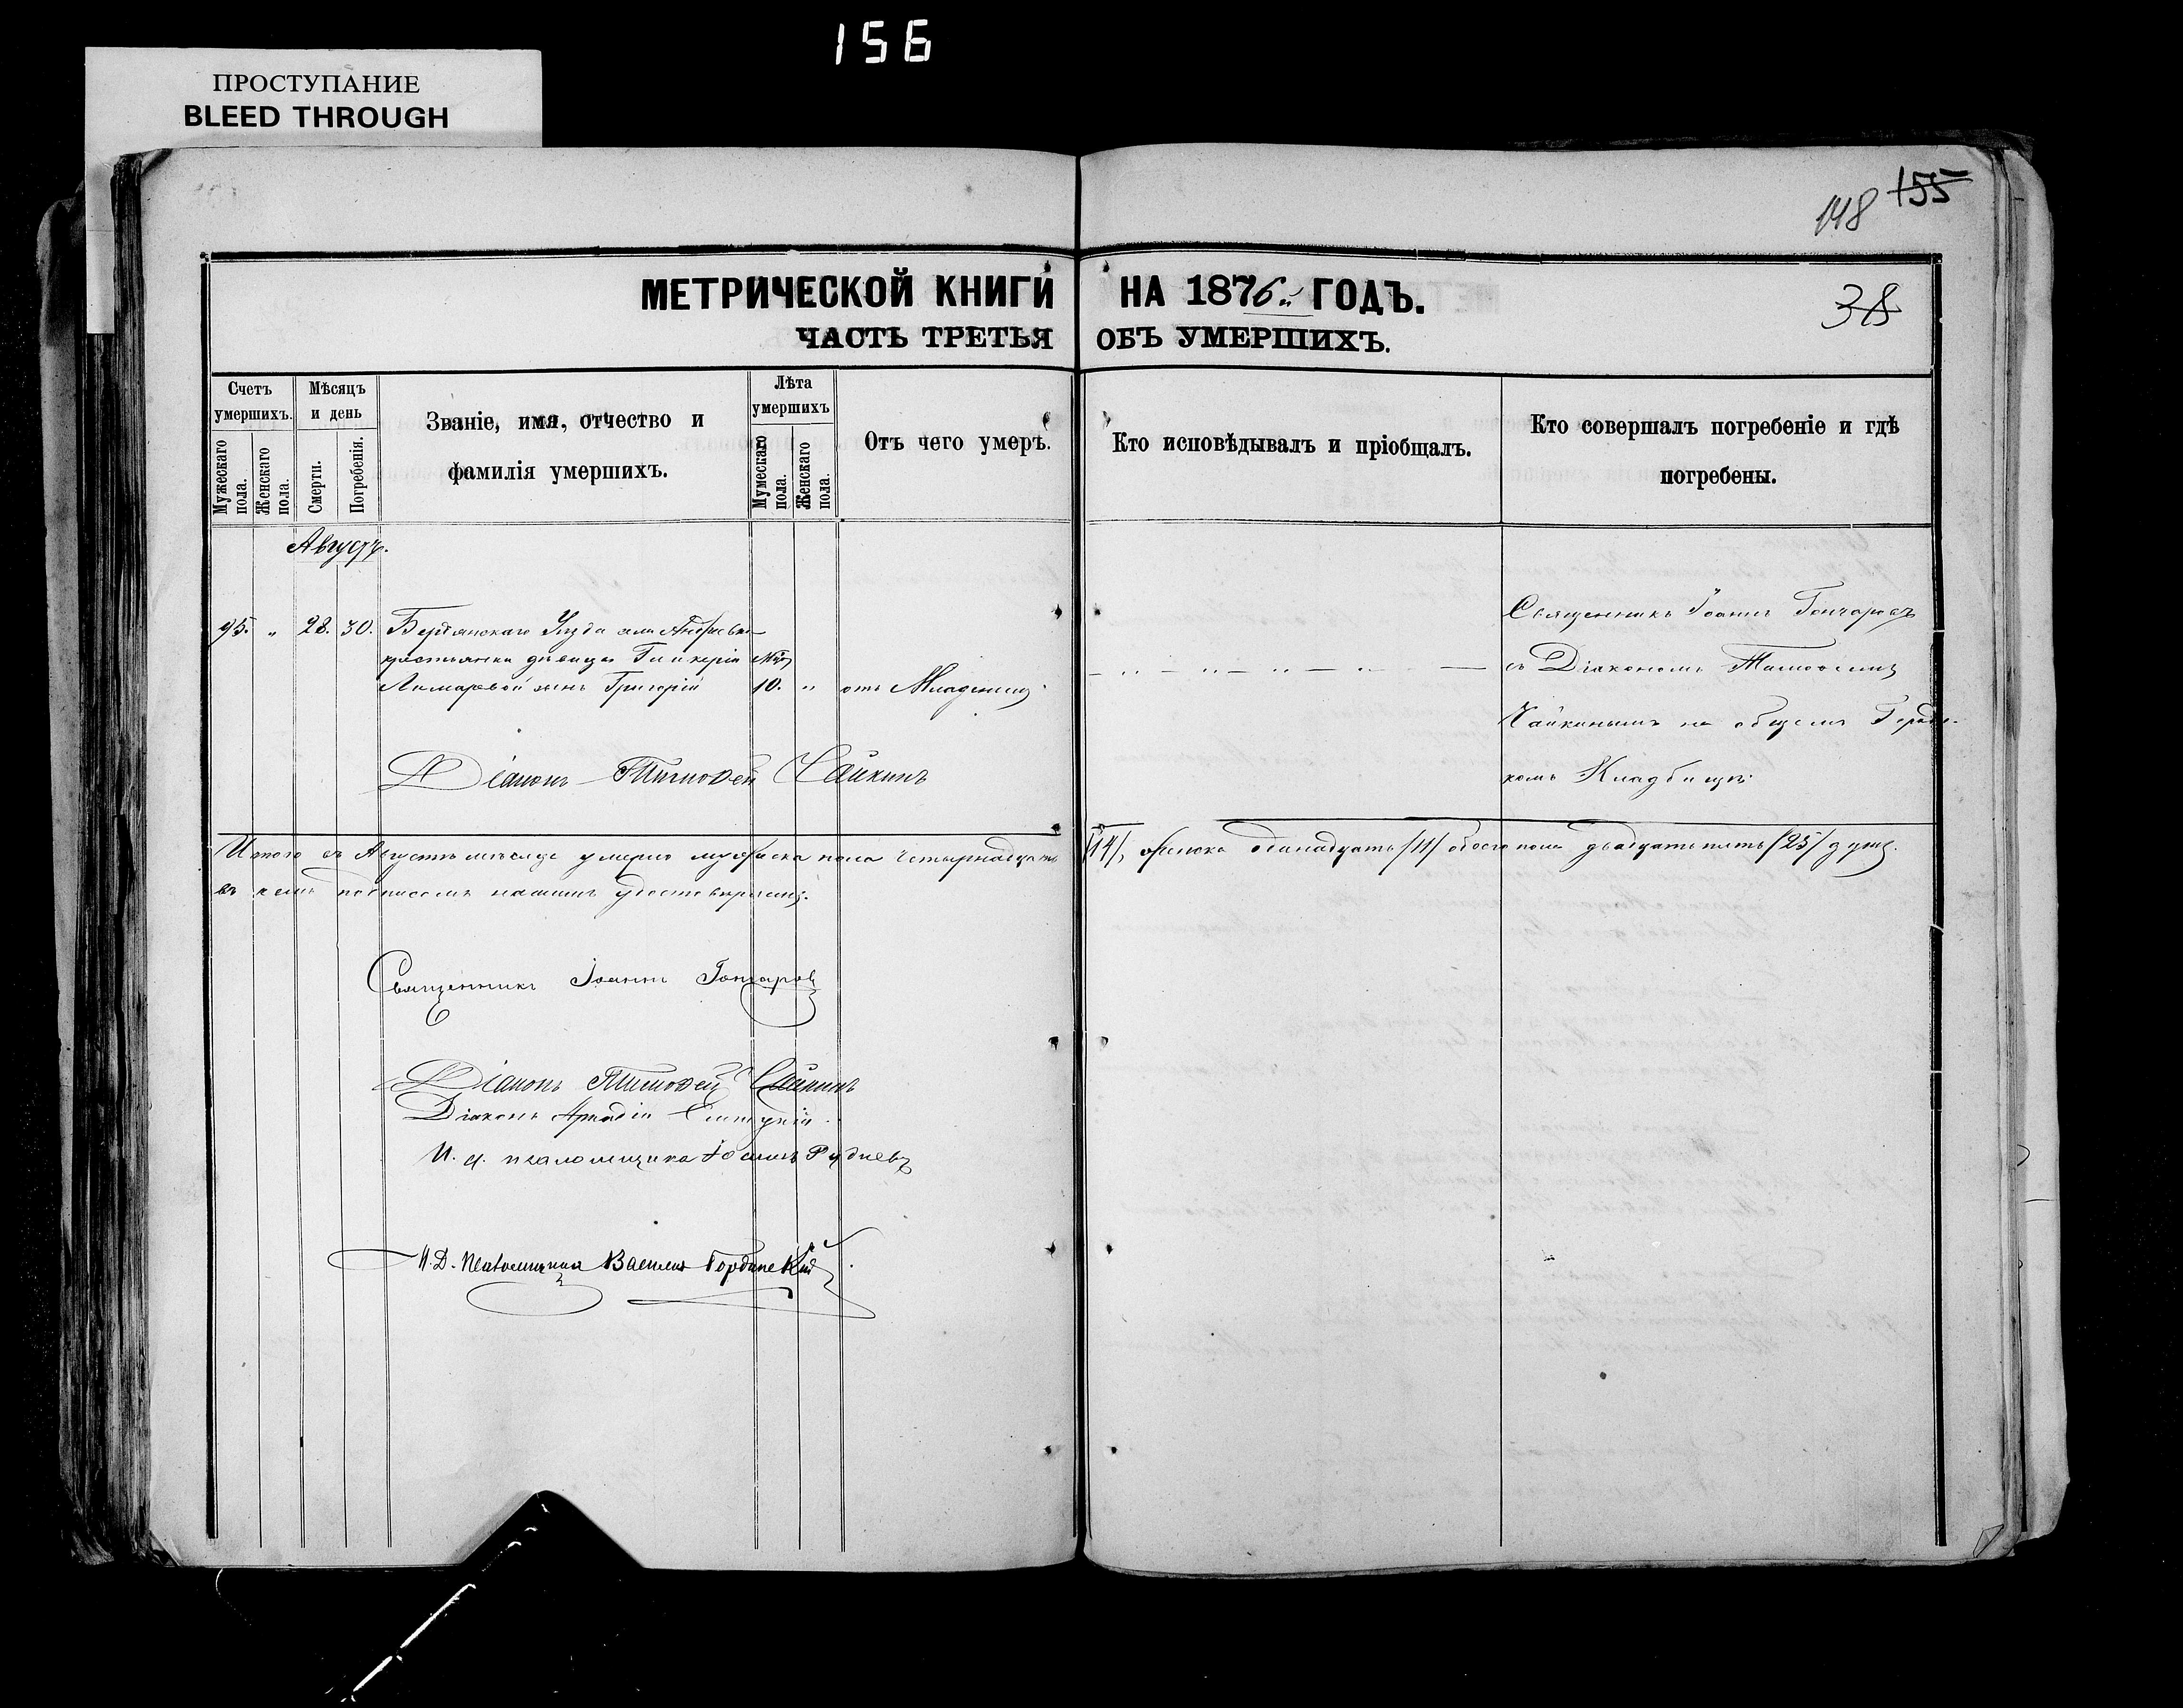 156
ПРОСТУПАНИЕ
BLEED THROUGH
148 155
МЕТРИЧЕСКОЙ КНИГИ НА 1876й ГОДЪ.
38
ЧАСТЬ ТРЕТЬЯ ОБЪ УМЕРШИХЪ.
Счетъ умершихъ.
Мужескаго пола.
Женскаго пола.
Мѣсяцъ и день
Смерти.
Погребенія.
Званіе, имя, отчество и
фамилія умершихъ.
Лѣта умершихъ
Мужескаго пола.
Женскаго пола.
Отъ чего умеръ.
Кто исповѣдывалъ и пріобщалъ.
Кто совершалъ погребеніе и гдѣ
погребены.
Августъ.
95. „ 28. 30. Бердянскаго Уѣзда села Андреевки
крестьянки дѣвицы Гликеріи Мѣс
сынъ Григорій 10. „ отъ Младенч.
Священникъ Іоаннъ Гончаровъ
съ Діакономъ Тимофеемъ
Чайкинымъ на общемъ Городс-
комъ Кладбищѣ.
Діаконъ Тимофей Чайкинъ
Итого въ Августѣ мѣсяцѣ умерло мужеска пола четырнадцать /14/, женска одинадцать /11/ обоего пола двадцать пять /25/ душъ.
въ чемъ подписомъ нашимъ удостовѣряемъ:
Священникъ Іоаннъ Гончаровъ
Діаконъ Тимофей Чайкинъ
Діаконъ
И. д. псаломщика Іоаннъ Рудневъ
И. Д. Псаломщика Василій Гординскій